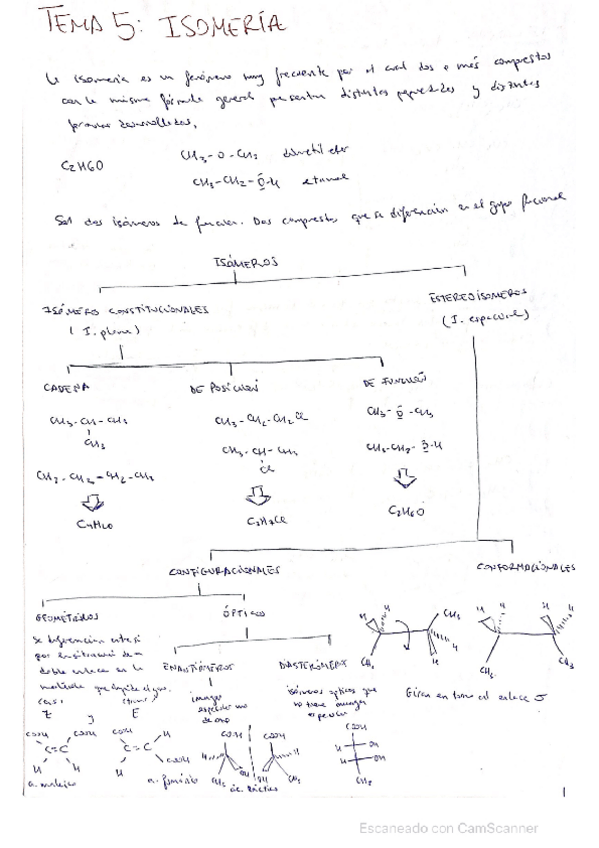 TEMA 5: ISOMERÍA
La isomería es un fenómeno muy frecuente por el cual dos o más compuestos
con la misma fórmula general presentan distintas propiedades y distintas
formas desarrolladas.
C2H6O
CH3-O-CH3 dimetil eter
CH3-CH2-O-H etanol
Son dos isómeros de función. Dos compuestos que se diferencian en el grupo funcional
ISÓMEROS
ISÓMERO CONSTITUCIONALES
(I. plana)
ESTEREOISOMEROS
(I. espacial)
CADENA
DE POSICIÓN
DE FUNCIÓN
CH3-CH-CH3
CH3
CH3-CH2-CH2-CH3
C4H10
CH3-CH2-CH2Cl
CH3-CH-CH3
Cl
C3H7Cl
CH3-O-CH3
CH3-CH2-O-H
C2H6O
CONFIGURACIONALES
CONFORMACIONALES
GEOMÉTRICOS
ÓPTICO
Se diferencian entre sí
por la situación de un
doble enlace en la
molécula que impide el giro.
(cis)
(trans)
Z
y
E
COOH
COOH
C=C
H
H
a. maleico
COOH
H
C=C
H
COOH
a. fumárico
ENANTIÓMEROS
imagen
especular uno
de otro
COOH
COOH
H
H
CH3
OH
OH
CH3
ác. láctico
DIASTERÓMEROS
isómeros opticos que
no tiene imagen
especular
COOH
OH
H
OH
CH3
H
H
CH3
H
H
CH3
H
H
H
H
CH3
CH3
Giran en torno al enlace σ
1
Escaneado con CamScanner